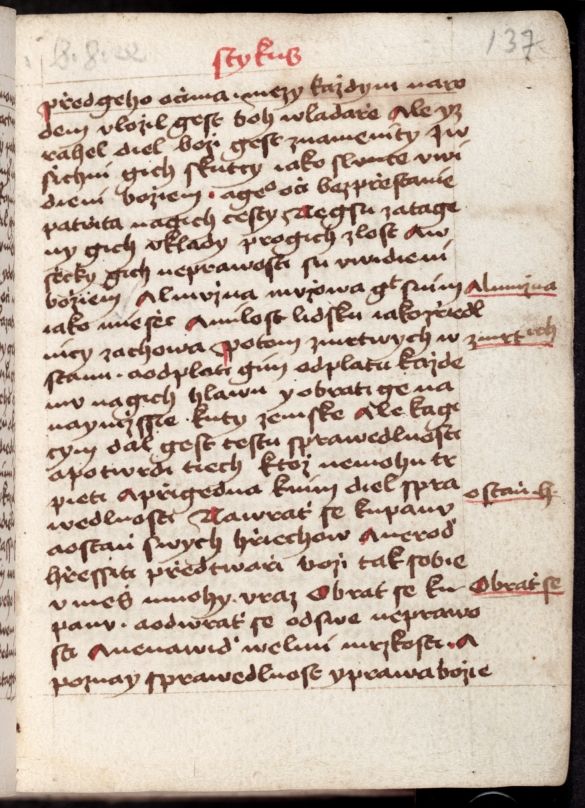 stykus
137
Předgeho očima · mezy každym naro
dem vložil gest boh wladaře Ale yz
rahel diel boži gest znamenity I w
sichni gich skutcy iako slunce vwi
dieni božiem · ageº oči bezpřestanie
patřita nagich cesty Negsu zatage
ny gich vklady progich zlost Aw
ssecky gich neprawosti su vwidieni
božiem Almužna mužowa gt snim
iako miešec Amilost lidsku iakozřiedl
nicy zachowa Potom zmrtwych w
stanu · aodplati gim odplatu každe
mu nagich hlawu y obrati ge na
naynižssie · kuty zemske Ale kagi
cym dal gest cestu sprawedlnosti
apotwrdi tiech ktož nemohu tr
pieti Apřigedna knim diel spra
wedlnosti Nawrať se kupanu
aostaň swych hřiechow Aneroď
hřessiti předtwaři boži tak sobie
vmeš mnohy · vraz Obrať se ku
panu · aodwrať se odswe neprawo
sti Anenawiď welmi mrzkosti · A
poznay sprawedlnost yprawa božie
Almužna
zmrtwch
ostaň h
Obrať se